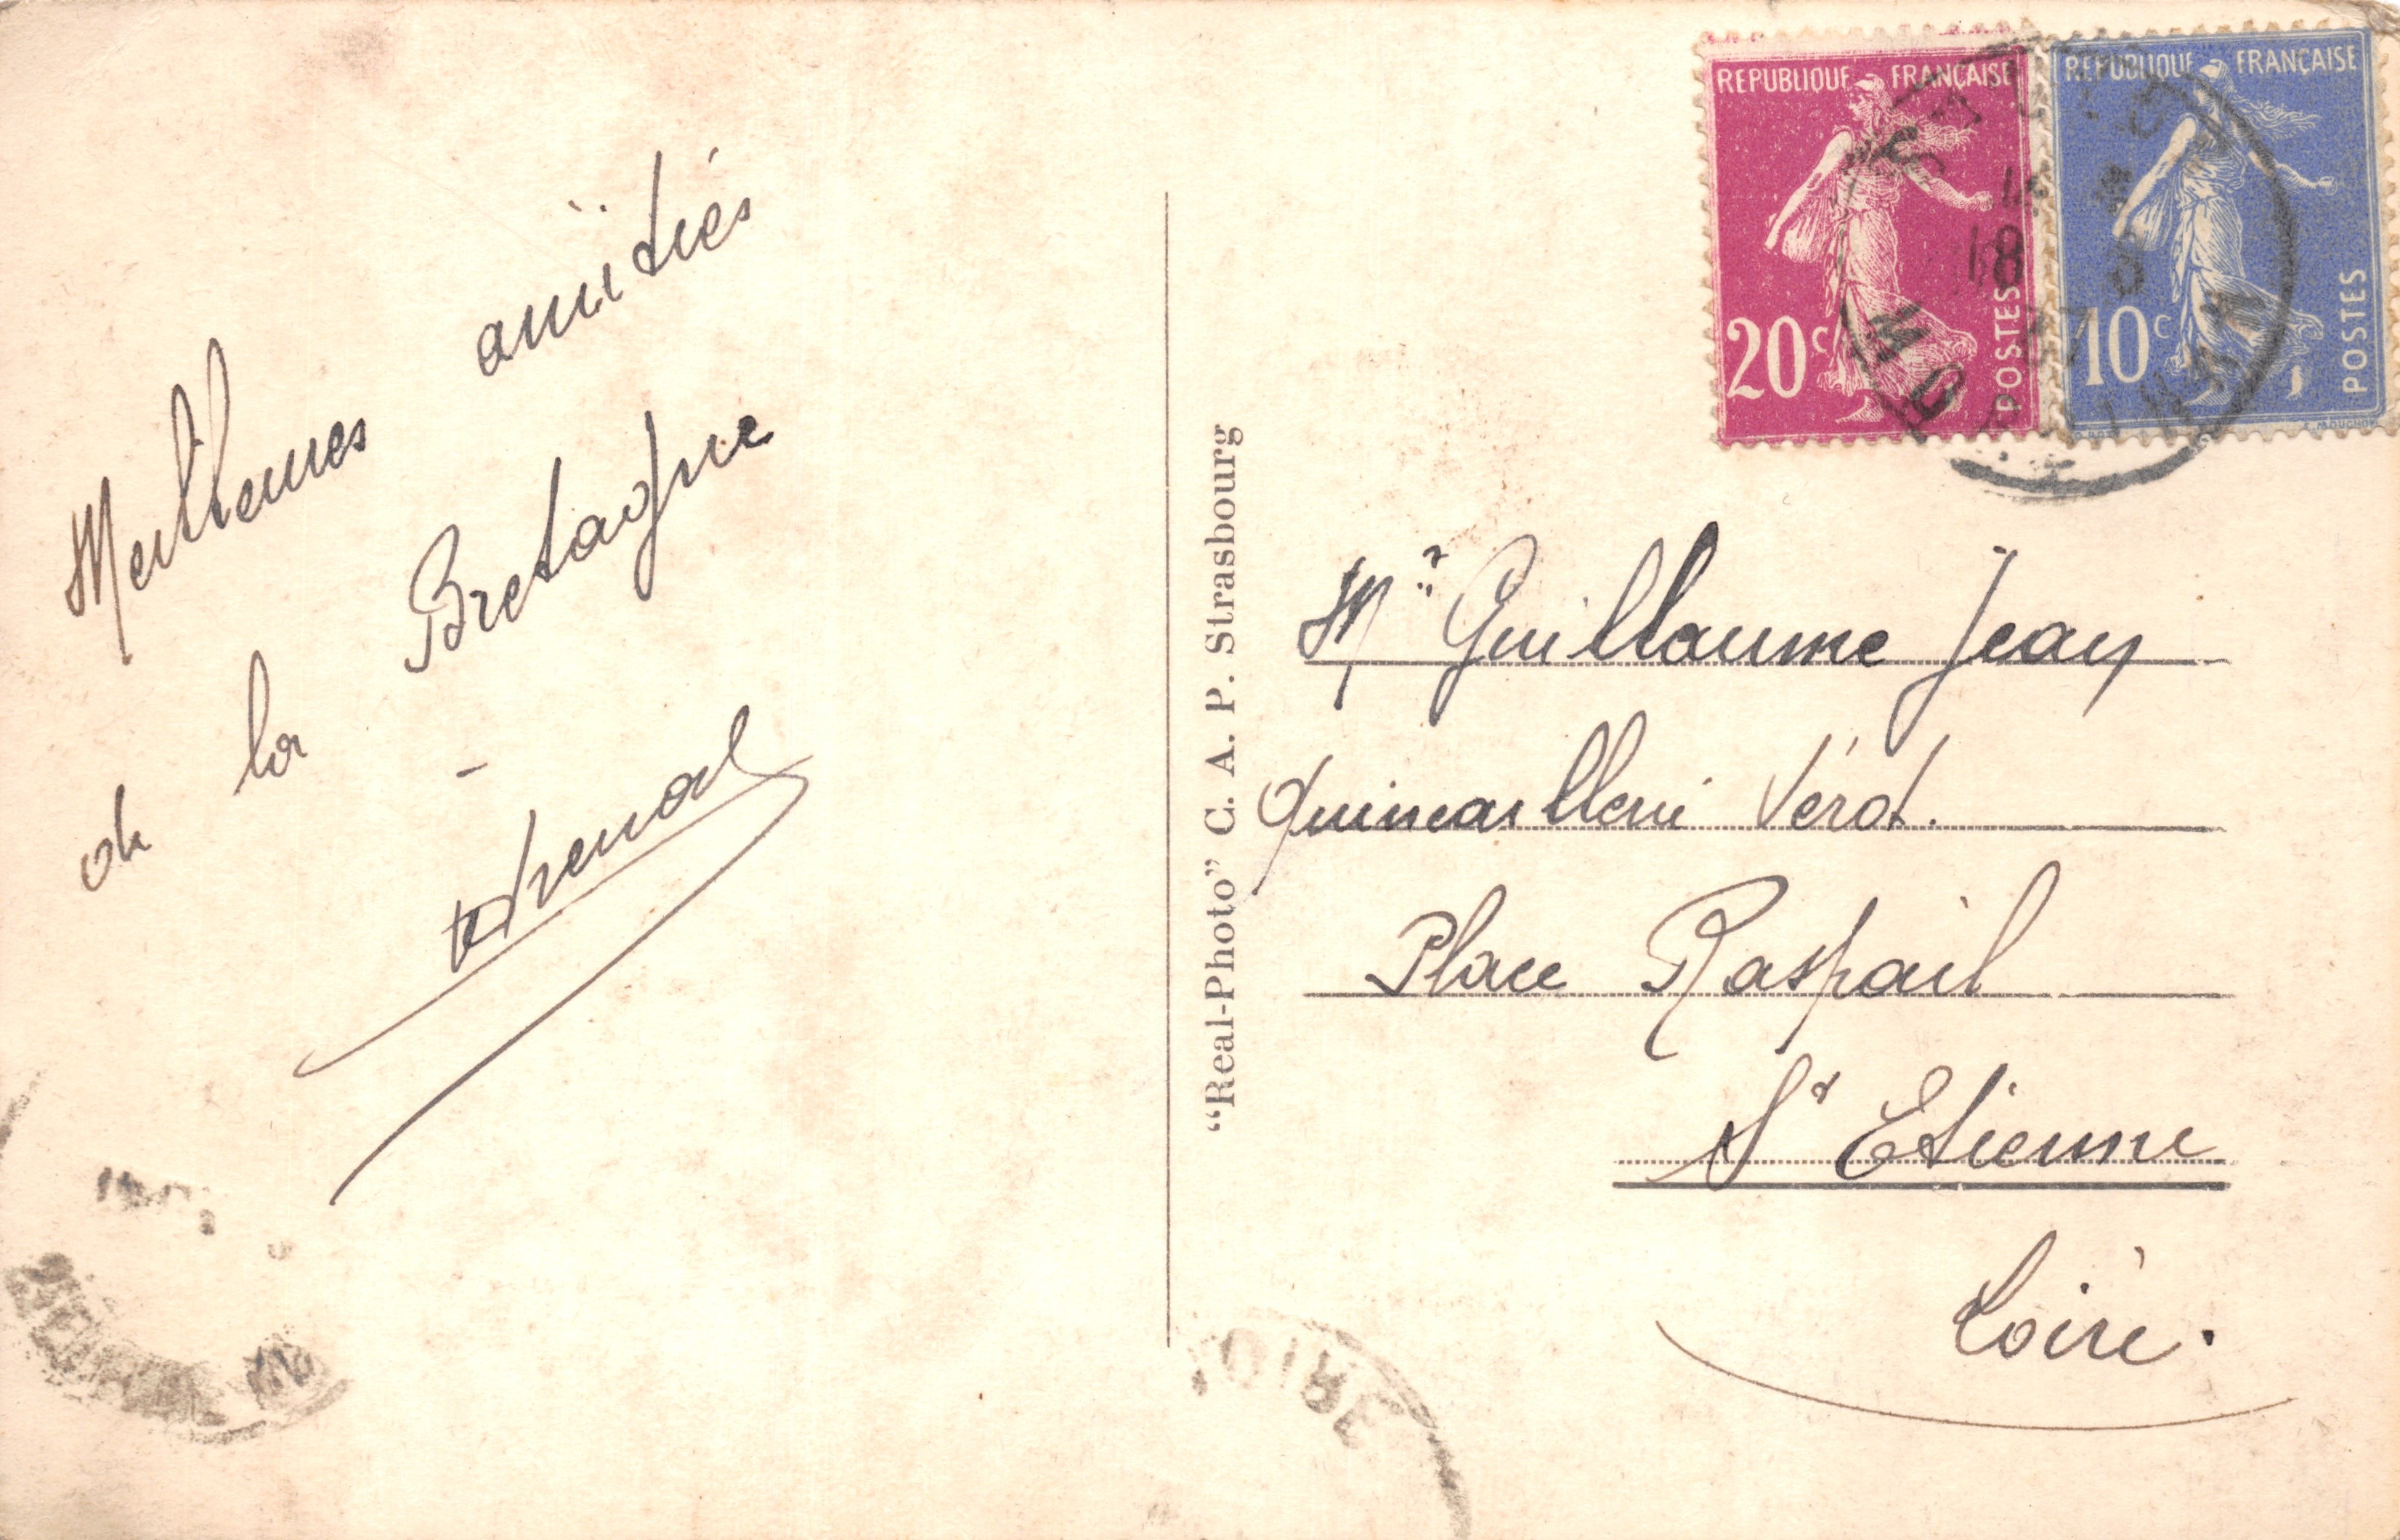 Meilleures amitiés
de la Bretagne
"Real-Photo" C. A. P. Strasbourg
REPUBLIQUE FRANÇAISE
20c
POSTES
REPUBLIQUE FRANÇAISE
10c
POSTES
18
Mr Guillaume Jean
Quincaillerie Verot.
Place Raspail
St Etienne
Loire.
LOIRE